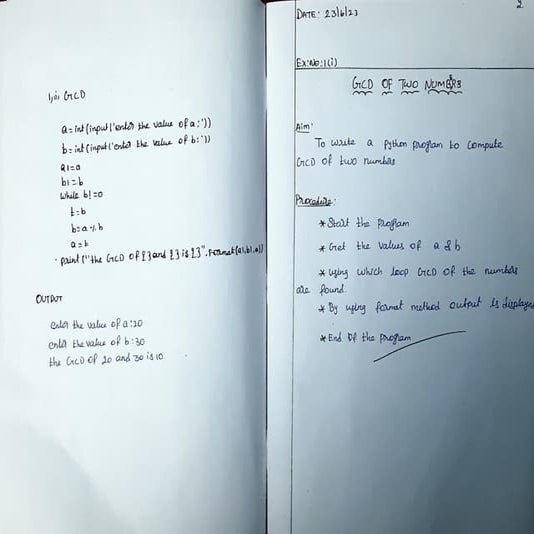 1, i), GCD
a = int(input('enter the value of a:'))
b = int(input('enter the value of b:'))
a1 = a
b1 = b
while b! = 0
t = b
b = a % b
a = t
print ("the GCD of {} and {} is {}".format(a1, b1, a))
OUTPUT
enter the value of a:20
enter the value of b:30
the GCD of 20 and 30 is 10
2
DATE: 23/6/23
Ex:No:1(i)
GCD OF TWO NUMBERS
Aim:
To write a python program to compute
GCD of two numbers
Procedure:
* Start the program
* Get the values of a & b
* using which loop GCD of the numbers
are found.
* By using format method output is displayed
* End of the program